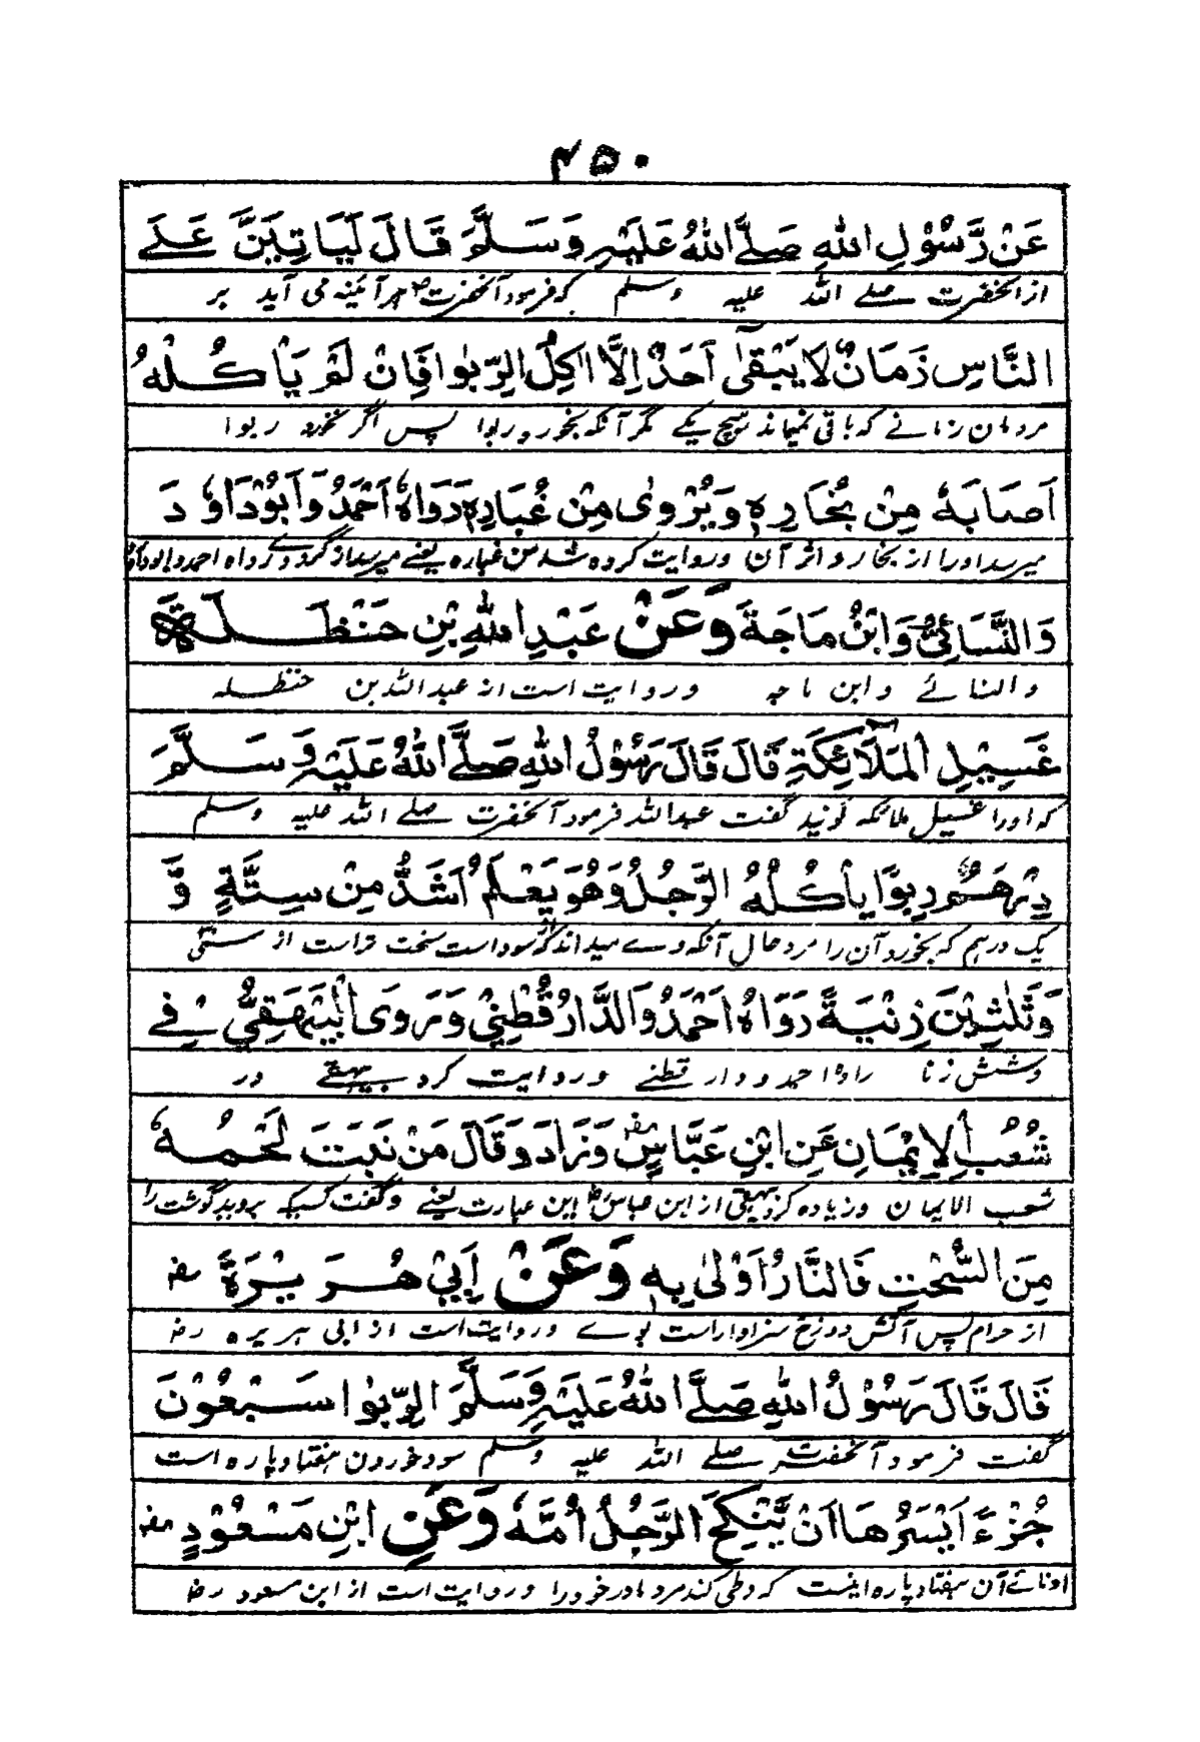 ۴۵۰
عَنْ رَّسُوْلِ اللهِ صَلَّے اللهُ عَلَيْهِ وَسَلَّمَ قَالَ لَيَاتِيَنَّ عَلَے
از آنحضرت صلے اللہ علیہ وسلم کہ فرمود آنحضرت ص ہر آئینہ می آید بر
النَّاسِ زَمَانٌ لَا يَبْقٰى اَحَدٌ اِلَّا اٰكِلُ الرِّبٰوا فَاِنْ لَمْ يَاْكُلْهُ
مردمان زمانے کہ باقی نمیماند ہیچ یکے مگر آنکہ بخورد ربوا پس اگر نخورد ربوا
اَصَابَهٗ مِنْ بُخَارِهٖ وَيُرْوٰى مِنْ غُبَارِهٖ رَوَاهُ اَحْمَدُ وَاَبُوْدَاوٗدَ
میرسد اورا از بخار و اثر آن و روایت کردہ شد من غبارہ یعنے میرسد از گرد وے رواہ احمد و ابوداؤد
وَالنَّسَائِيُّ وَابْنُ مَاجَةَ وَعَنْ عَبْدِ اللهِ بْنِ حَنْظَلَةَ
والنسائے وابن ماجہ و روایت است از عبداللہ بن حنظلہ
غَسِيْلِ الْمَلَآئِكَةِ قَالَ قَالَ رَسُوْلُ اللهِ صَلَّے اللهُ عَلَيْهِ وَسَلَّمَ
کہ اورا غسیل ملائکہ گویند گفت عبداللہ فرمود آنحضرت صلے اللہ علیہ وسلم
دِرْهَمُ رِبوًا يَاْكُلُهُ الرَّجُلُ وَهُوَ يَعْلَمُ اَشَدُّ مِنْ سِتَّةٍ وَّ
یک درہم کہ بخورد آن را مرد حال آنکہ وے میداند کہ سود است سخت تر است از ستی
وَثَلٰثِيْنَ زِنْيَةً رَوَاهُ اَحْمَدُ وَالدَّارُقُطْنِيُّ وَرَوَى الْبَيْهَقِيُّ فِے
وشش زنا راوہ احمد و دار قطنے و روایت کرد بیہقے در
شُعَبِ الْاِيْمَانِ عَنِ ابْنِ عَبَّاسٍ رض وَزَادَ وَقَالَ مَنْ نَبَتَ لَحْمُهٗ
شعب الایمان و زیادہ کرد بیہقی از ابن عباس رض باین عبارت یعنے وگفت کسیکہ بروید گوشت را
مِنَ السُّحْتِ فَالنَّارُ اَوْلٰى بِهٖ وَعَنْ اَبِيْ هُرَيْرَةَ رض
از حرام پس آتش دوزخ سزاوار است بوے و روایت است از ابی ہریرہ رض
قَالَ قَالَ رَسُوْلُ اللهِ صَلَّے اللهُ عَلَيْهِ وَسَلَّمَ الرِّبٰوا سَبْعُوْنَ
گفت فرمود آنحضرت صلے اللہ علیہ وسلم سود خوردن ہفتاد پارہ است
جُزْءً اَيْسَرُهَا اَنْ يَّنْكِحَ الرَّجُلُ اُمَّهٗ وَعَنِ ابْنِ مَسْعُوْدٍ رض
ادنائے آن ہفتاد پارہ اینست کہ وطی کند مرد مادر خود را و روایت است از ابن مسعود رض